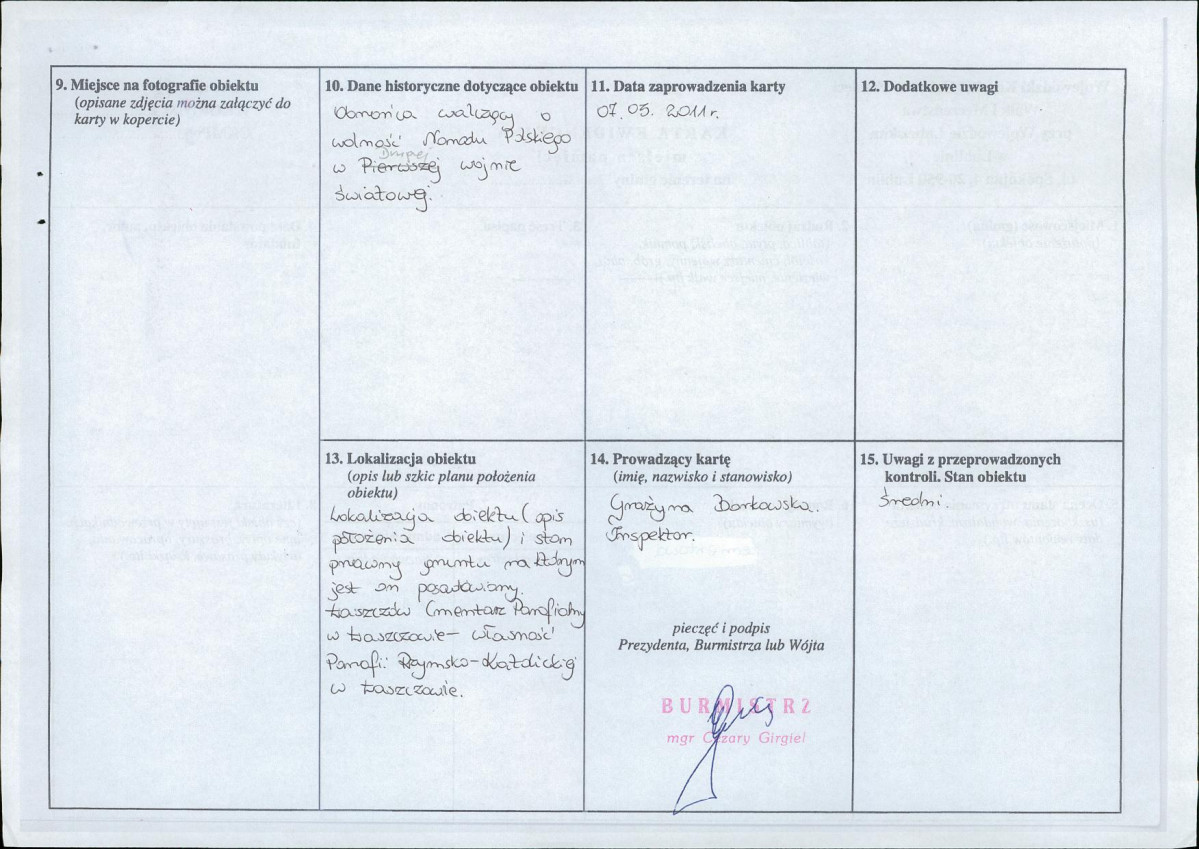 9. Miejsce na fotografie obiektu
(opisane zdjęcia można załączyć do
karty w kopercie)
10. Dane historyczne dotyczące obiektu
Obrońca walczący o
wolność Narodu Polskiego
Drugiej
w Pierwszej wojnie
światowej.
11. Data zaprowadzenia karty
07.03.2011r.
12. Dodatkowe uwagi
13. Lokalizacja obiektu
(opis lub szkic planu położenia
obiektu)
Lokalizacja obiektu (opis
położenia obiektu) i stan
prawny gruntu na którym
jest on posadowiony.
Łaszczów Cmentarz Parafialny
w Łaszczowie- własność
Parafii Rzymsko-Katolickiej
w Łaszczowie.
14. Prowadzący kartę
(imię, nazwisko i stanowisko)
Grażyna Borkowska.
Inspektor.
pieczęć i podpis
Prezydenta, Burmistrza lub Wójta
BURMISTRZ
mgr Cezary Girgiel
15. Uwagi z przeprowadzonych
kontroli. Stan obiektu
Średni